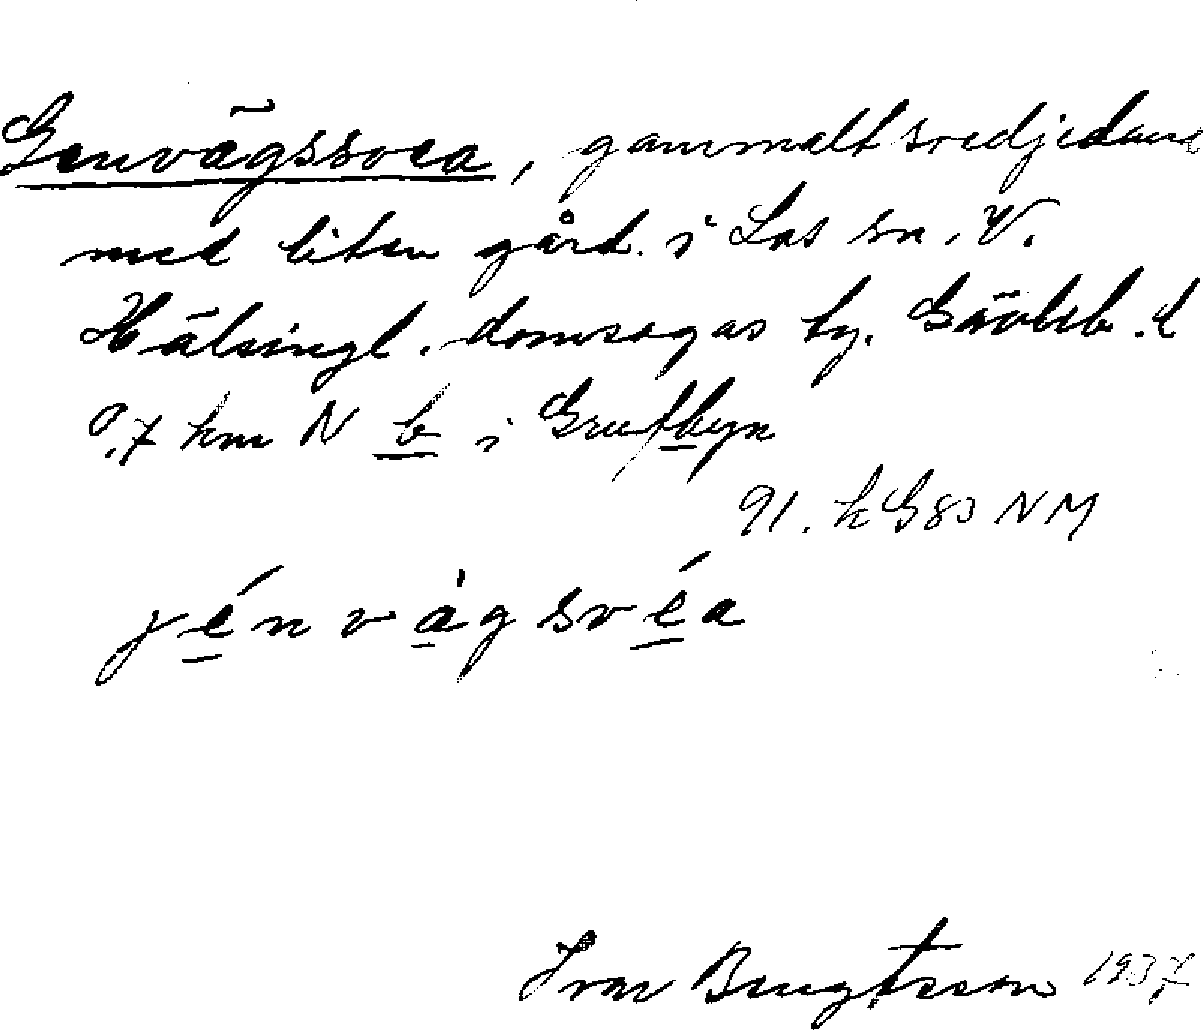 Genvägssvea, gammalt svedjeland
med liten gård i Los sn. V.
Hälsingl. domsagas tg. Gävleb. l
0,7 km N b i Grufbyn
91. k G 83 NM
jénvàgsvéa
Ivar Bengtsson 1937